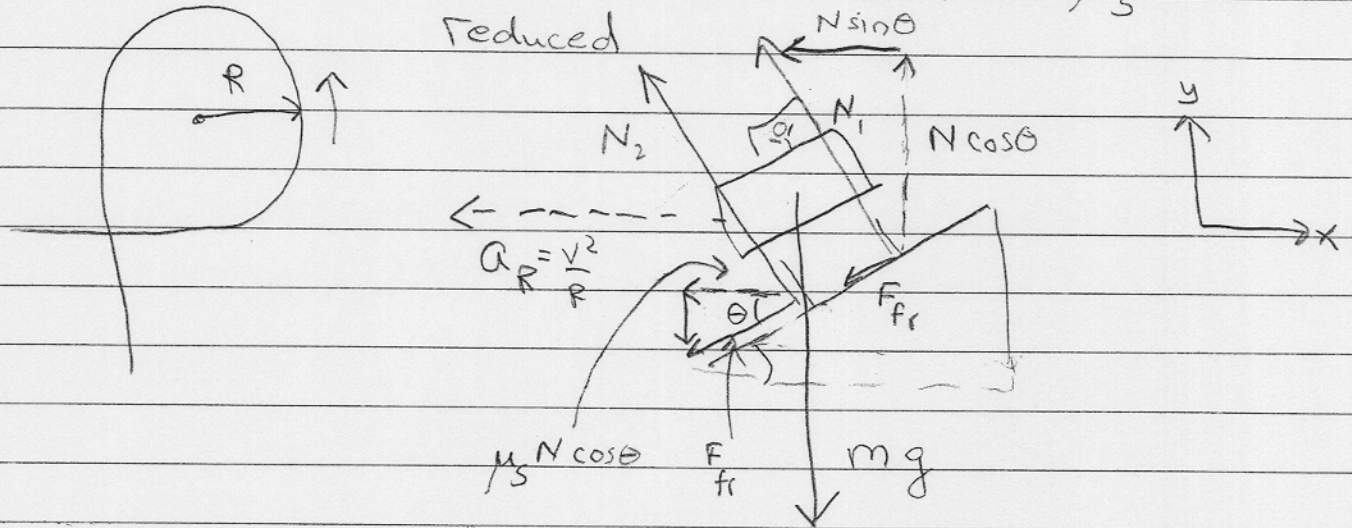 reduced
N sinθ
R
N₂
θ
N₁
N cosθ
y
x
a_R = v²/R
θ
F_fr
μ_s N cosθ
F_fr
mg